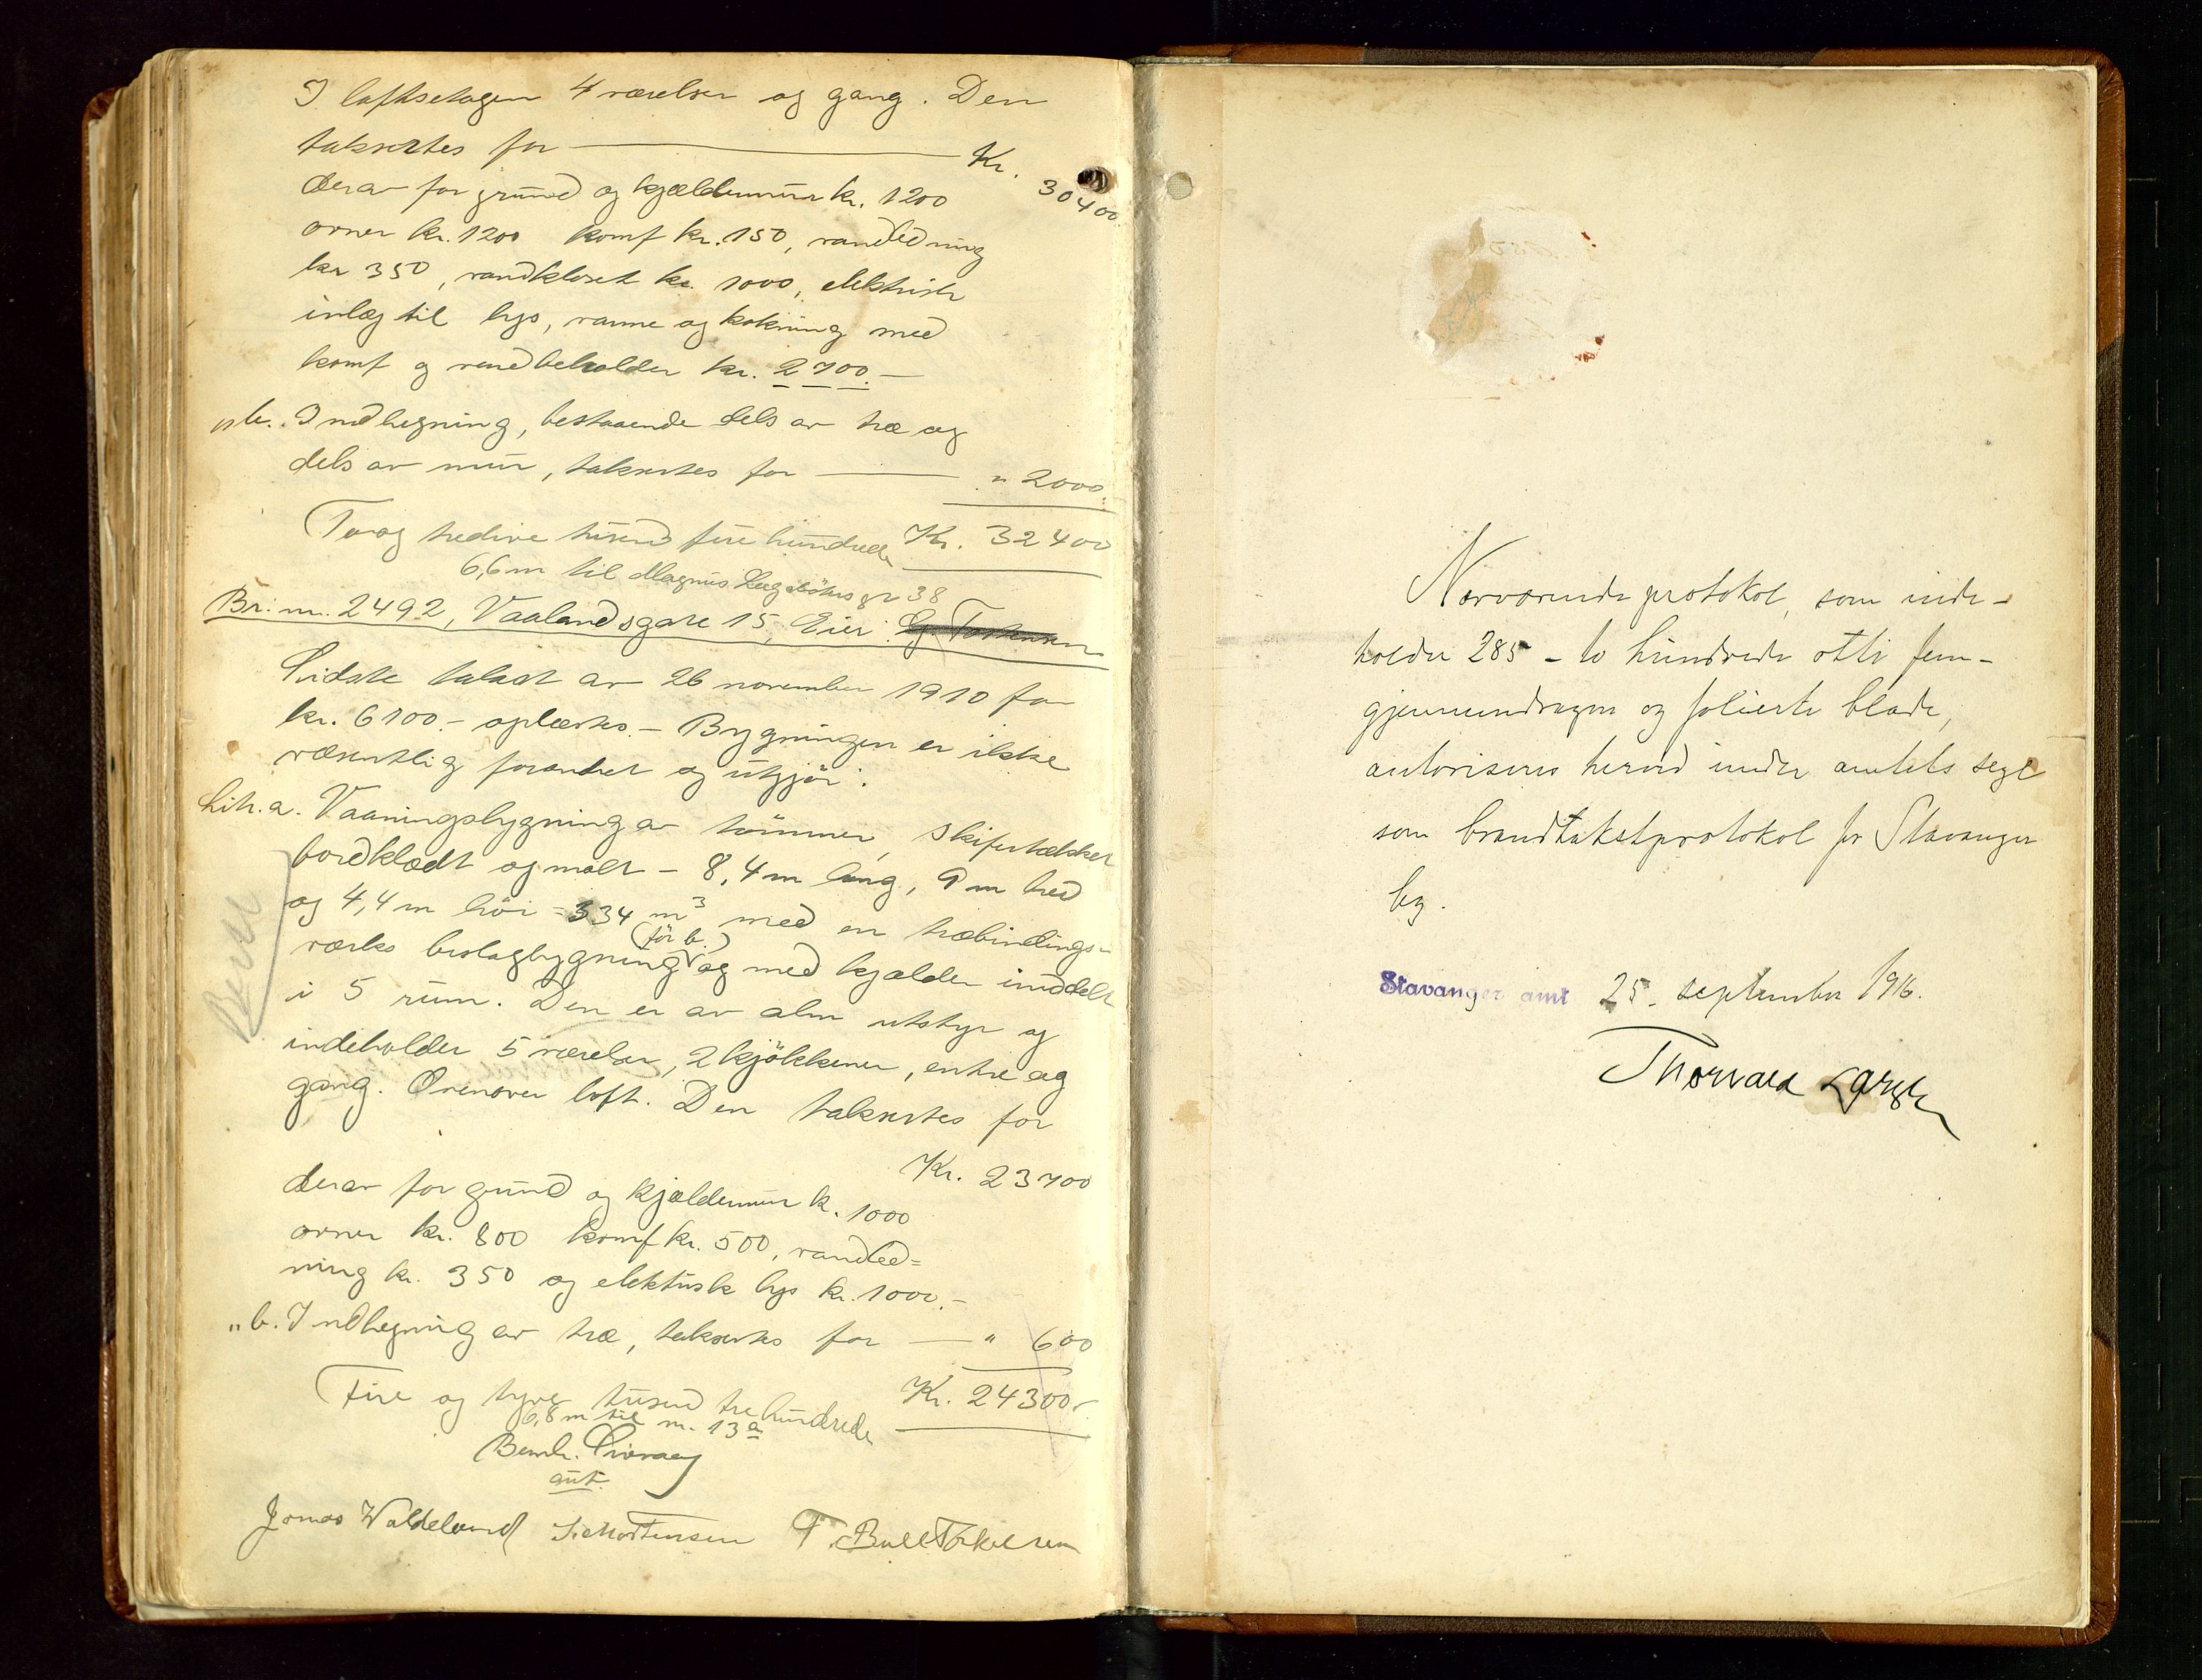 I loftsetagen 4 værelser og gang. Den
takseres for — Kr. 30400
derav for grund og kjældermur kr. 1200
ovner kr. 1200 komf kr. 150, vandledning
kr 350, vandkloset kr. 1000, elektrisk
inlæg til lys, varme og kokning med
komf og vandbeholder kr. 2700.—
" b. Indhegning, bestaaende dels av træ og
dels av mur, takseres for — " 2000.
To og tredive tusend fire hundrede Kr. 32400
6,6 m til Magnus gt 38
Br. nr. 2492, Vaalandsgate 15, Eier:
Sidste takst av 26 november 1910 for
kr. 6100.- oplæstes. — Bygningen er ikke
væsentlig forandret og utgjør:
Litr. a. Vaaningsbygning av tømmer, skifertækket
bordklædt og malt - 8,4 m lang, 9 m bred
og 4,4 m høi = 334 m³ med en træbindings-
verks beslagbygning (før b.) og med kjælder inddelt
i 5 rum. Den er av alm utstyr og
indeholder 5 værelser, 2 kjøkkener, entre og
gang. Ovenover loft. Den takseres for
Kr. 23700
derav for grund og kjældermur k. 1000
ovner kr. 800 komf kr. 500, vandled=
ning kr. 350 og elektrisk lys kr. 1000.-
" b. Indhegning av træ, takseres for — " 600
Fire og tyve tusend tre hundrede Kr. 24300.-
6,8 m til nr. 13 a
Bernh.
aut.
Jonas Waldeland S. Mortensen T. Bull Torkelsen
Nærværende protokol, som inde-
holder 285 - to hundrede otti fem -
gjennemdragne og folierte blade,
autoriseres herved under amtets segl
som brandtakstprotokol for Stavanger
by.
Stavanger amt 25. september 1916.
Thorvald Larsen